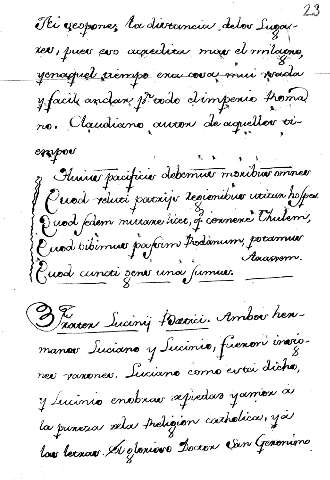 23
Ni se opone, la distancia delos Luga-
res, pues eso acredita mas el milagro,
yenaquel tiempo era cosa mui usada
y facil andar pr. todo el imperio Roma
no. Claudiano autor de aquellos ti-
empos
Huius pacificis debemus moribus omnes
Quod veluti patrijs regionibus utitur hospes
Quod sedem mutare licet, qd. cernere Thulem,
Quod bibimus passim Rodanum, potamus
Oruntem.
Quod cuncti gens una sumus.
3 Frater Lucinij Bætici. Ambos her-
manos Luciano y Lucinio, fueron insig-
nes varones. Luciano como esta dicho,
y Lucinio en obras de piedad y amor a
la pureza dela Religion catholica, y á
las letras. El glorioso Doctor San Geronimo